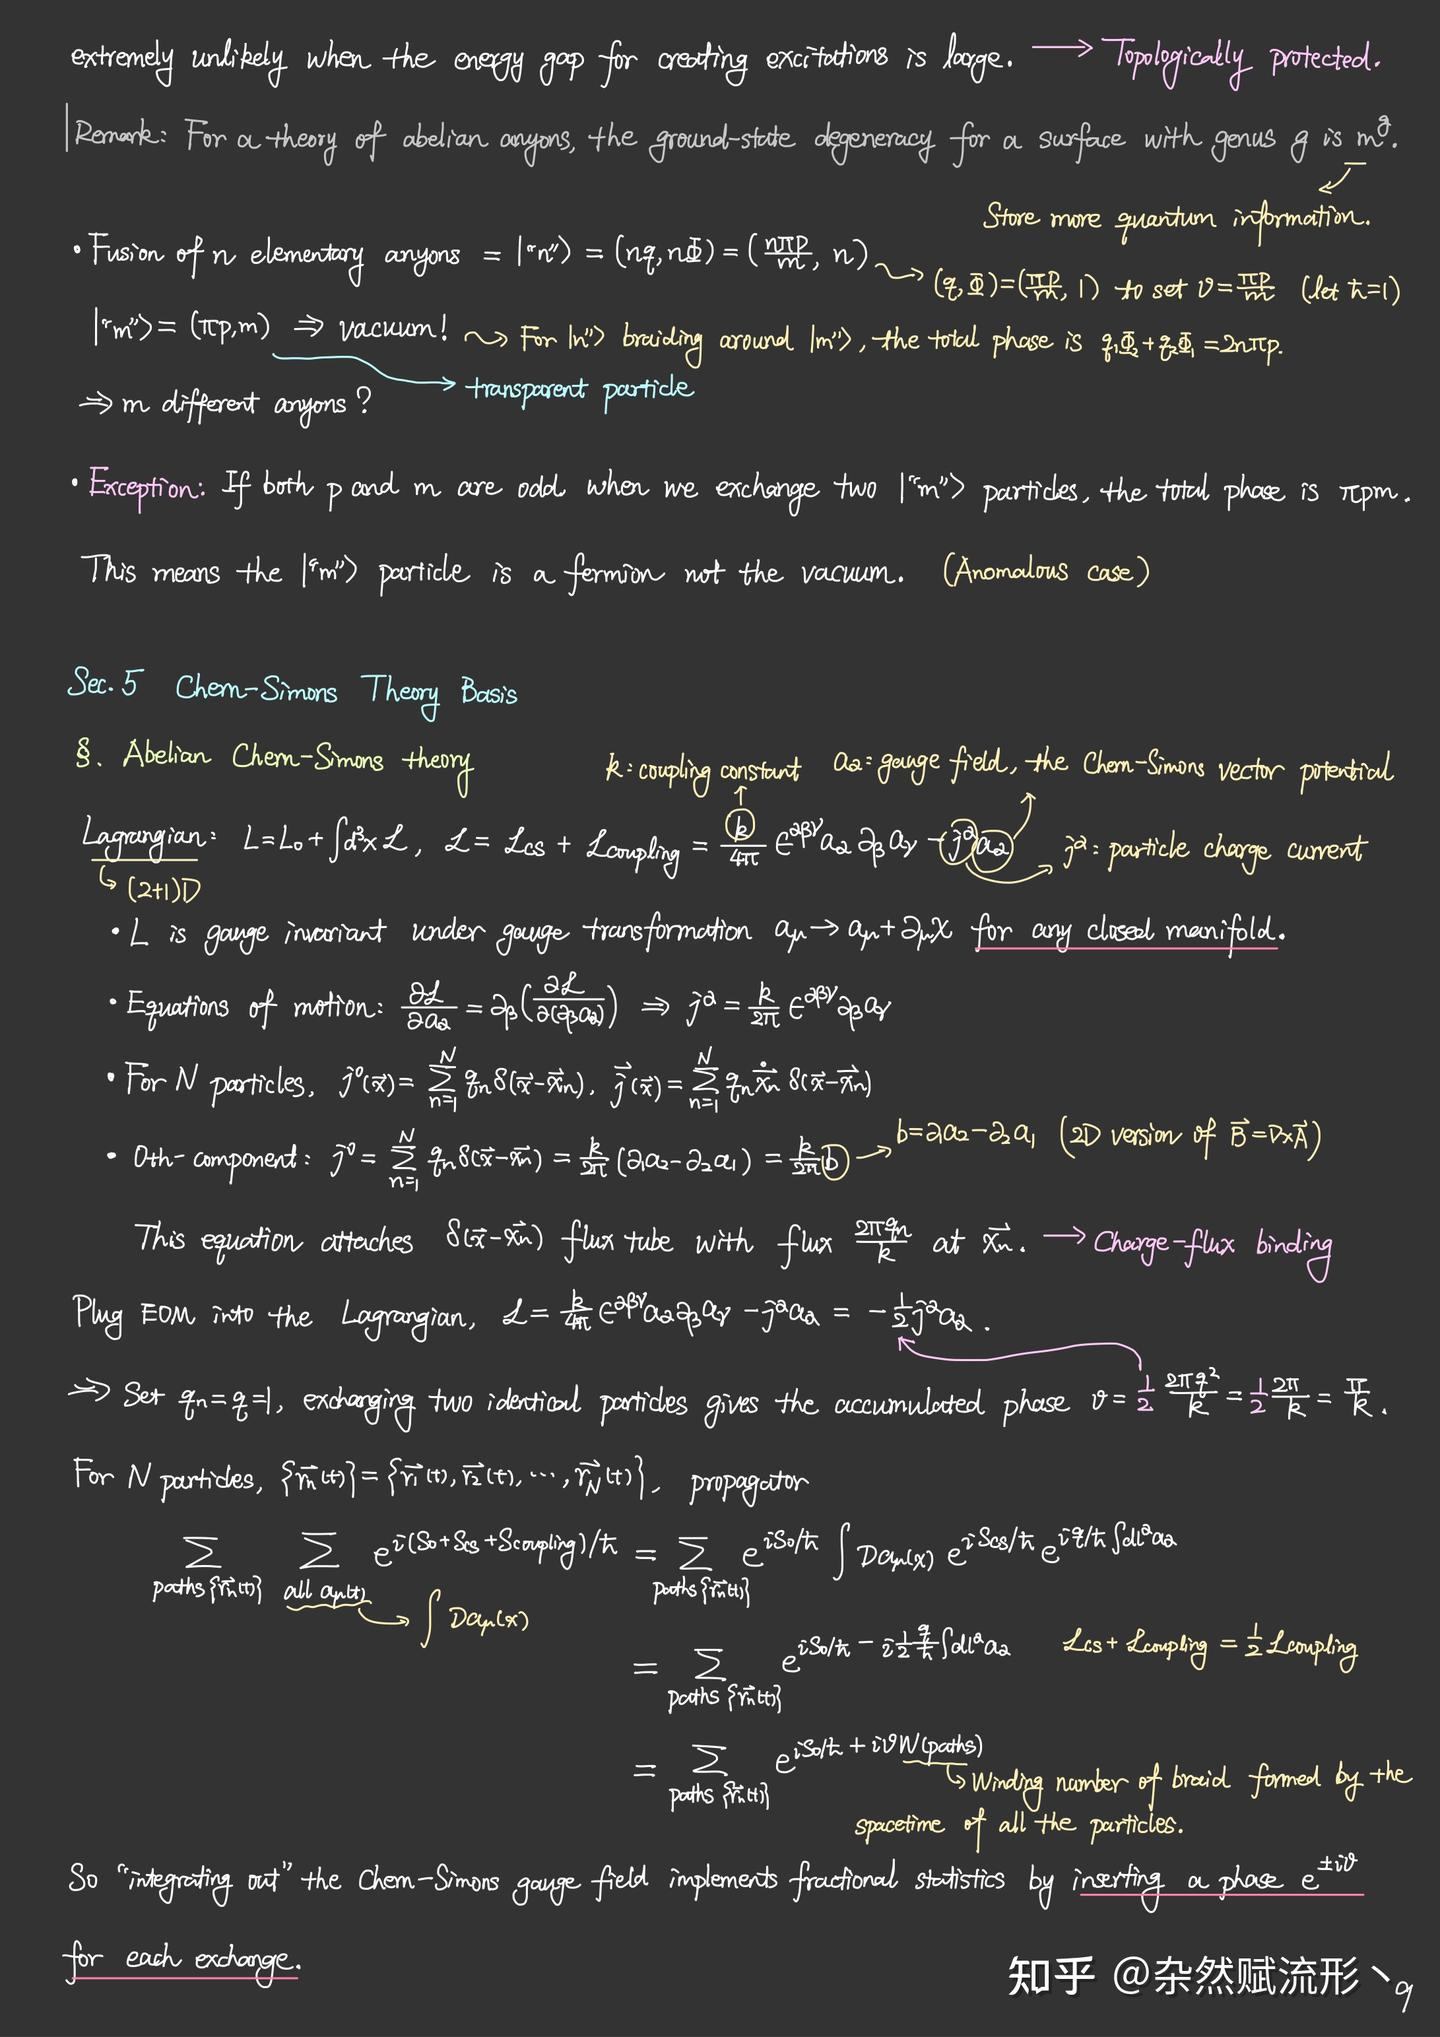 extremely unlikely when the energy gap for creating excitations is large. ⟶ Topologically protected.
Remark: For a theory of abelian anyons, the ground-state degeneracy for a surface with genus g is m^g.
Store more quantum information.
• Fusion of n elementary anyons = |"n"⟩ = (nq, nΦ) = (nπp/m, n) ⇝ (q, Φ) = (πp/m, 1) to set ϑ = πp/m (let ħ=1)
|"m"⟩ = (πp, m) ⇒ vacuum! ⇝ For |n"⟩ braiding around |m"⟩, the total phase is q₁Φ₂ + q₂Φ₁ = 2nπp.
transparent particle
⇒ m different anyons?
• Exception: If both p and m are odd, when we exchange two |"m"⟩ particles, the total phase is πpm.
This means the |"m"⟩ particle is a fermion not the vacuum. (Anomalous case)
Sec. 5 Chern-Simons Theory Basis
§. Abelian Chern-Simons theory
k: coupling constant a_α: gauge field, the Chern-Simons vector potential
Lagrangian: L = L₀ + ∫d³x ℒ, ℒ = ℒ_CS + ℒ_coupling = k/4π ε^{αβγ} a_α ∂_β a_γ − j^α a_α j^α: particle charge current
(2+1)D
• L is gauge invariant under gauge transformation a_μ → a_μ + ∂_μ χ for any closed manifold.
• Equations of motion: ∂ℒ/∂a_α = ∂_β (∂ℒ/∂(∂_β a_α)) ⇒ j^α = k/2π ε^{αβγ} ∂_β a_γ
• For N particles, j⁰(x⃗) = Σ_{n=1}^{N} q_n δ(x⃗−x⃗_n), j⃗(x⃗) = Σ_{n=1}^{N} q_n ẋ⃗_n δ(x⃗−x⃗_n)
b = ∂₁a₂ − ∂₂a₁ (2D version of B⃗ = ∇×A⃗)
• 0th-component: j⁰ = Σ_{n=1}^{N} q_n δ(x⃗−x⃗_n) = k/2π (∂₁a₂ − ∂₂a₁) = k/2π b
This equation attaches δ(x⃗−x⃗_n) flux tube with flux 2πq_n/k at x⃗_n. ⟶ Charge-flux binding
Plug EOM into the Lagrangian, ℒ = k/4π ε^{αβγ} a_α ∂_β a_γ − j^α a_α = − 1/2 j^α a_α.
⇒ Set q_n = q = 1, exchanging two identical particles gives the accumulated phase ϑ = 1/2 2πq²/k = 1/2 2π/k = π/k.
For N particles, {r⃗_n(t)} = {r⃗₁(t), r⃗₂(t), ⋯, r⃗_N(t)}, propagator
Σ_{paths {r⃗_n(t)}} Σ_{all a_μ(t)} e^{i(S₀+S_CS+S_coupling)/ħ} = Σ_{paths {r⃗_n(t)}} e^{iS₀/ħ} ∫Da_μ(x) e^{iS_CS/ħ} e^{iq/ħ ∫dl^α a_α}
∫Da_μ(x)
= Σ_{paths {r⃗_n(t)}} e^{iS₀/ħ − i 1/2 q/ħ ∫dl^α a_α} ℒ_CS + ℒ_coupling = 1/2 ℒ_coupling
= Σ_{paths {r⃗_n(t)}} e^{iS₀/ħ + iϑW(paths)}
Winding number of braid formed by the
spacetime of all the particles.
So "integrating out" the Chern-Simons gauge field implements fractional statistics by inserting a phase e^{±iϑ}
for each exchange.
知乎 @杂然赋流形丶
9